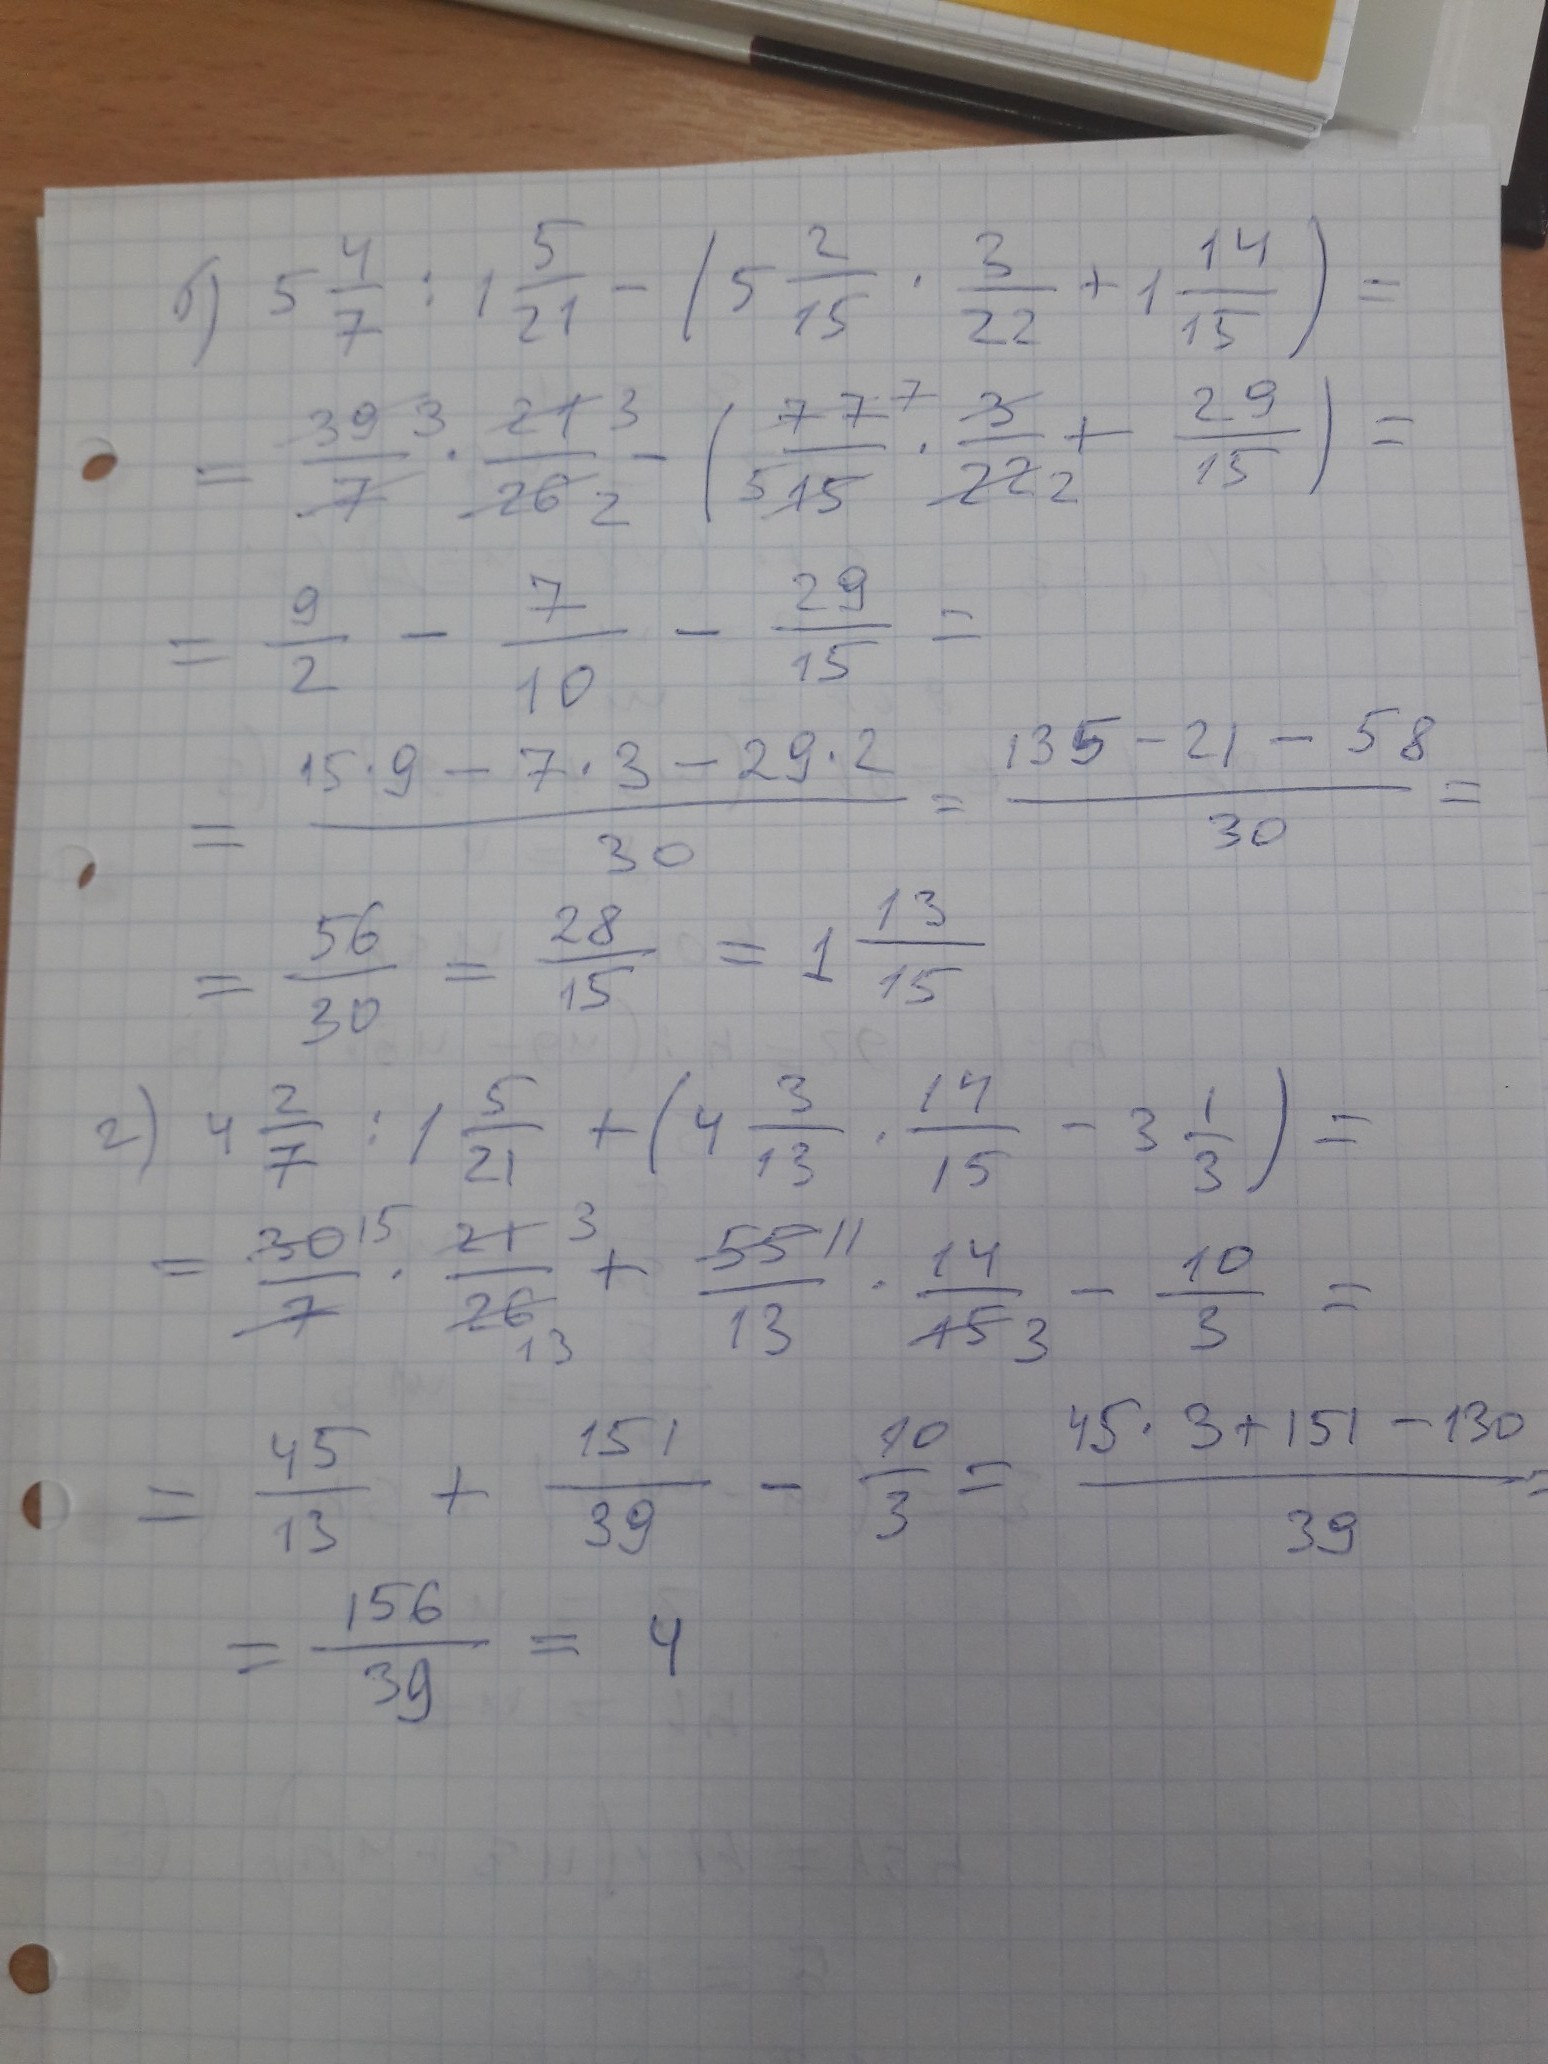 б) 5 4/7 : 1 5/21 - (5 2/15 · 3/22 + 1 14/15) =
= 39 3/7 · 21 3/26 2 - (77 7/5 15 · 3/22 2 + 29/15) =
= 9/2 - 7/10 - 29/15 =
= 15·9 - 7·3 - 29·2/30 = 135 - 21 - 58/30 =
= 56/30 = 28/15 = 1 13/15
г) 4 2/7 : 1 5/21 + (4 3/13 · 14/15 - 3 1/3) =
= 30 15/7 · 21 3/26 13 + 55 11/13 · 14/15 3 - 10/3 =
= 45/13 + 151/39 - 10/3 = 45·3 + 151 - 130/39 =
= 156/39 = 4